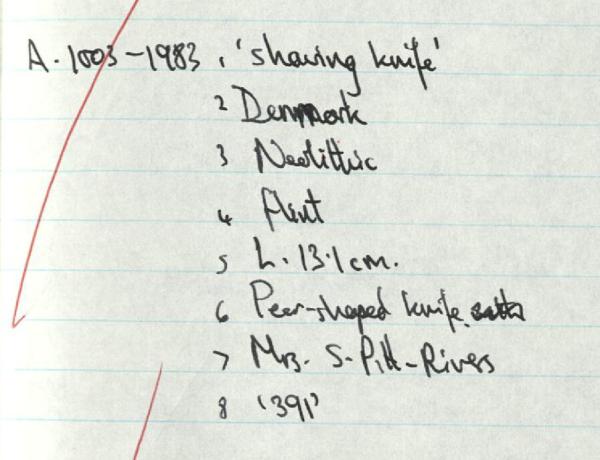 A.1003-1983 1 'shaving knife'
2 Denmark
3 Neolithic
4 flint
5 L. 13.1cm.
6 Pear-shaped knife.
7 Mrs. S. Pitt-Rivers
8 '391'